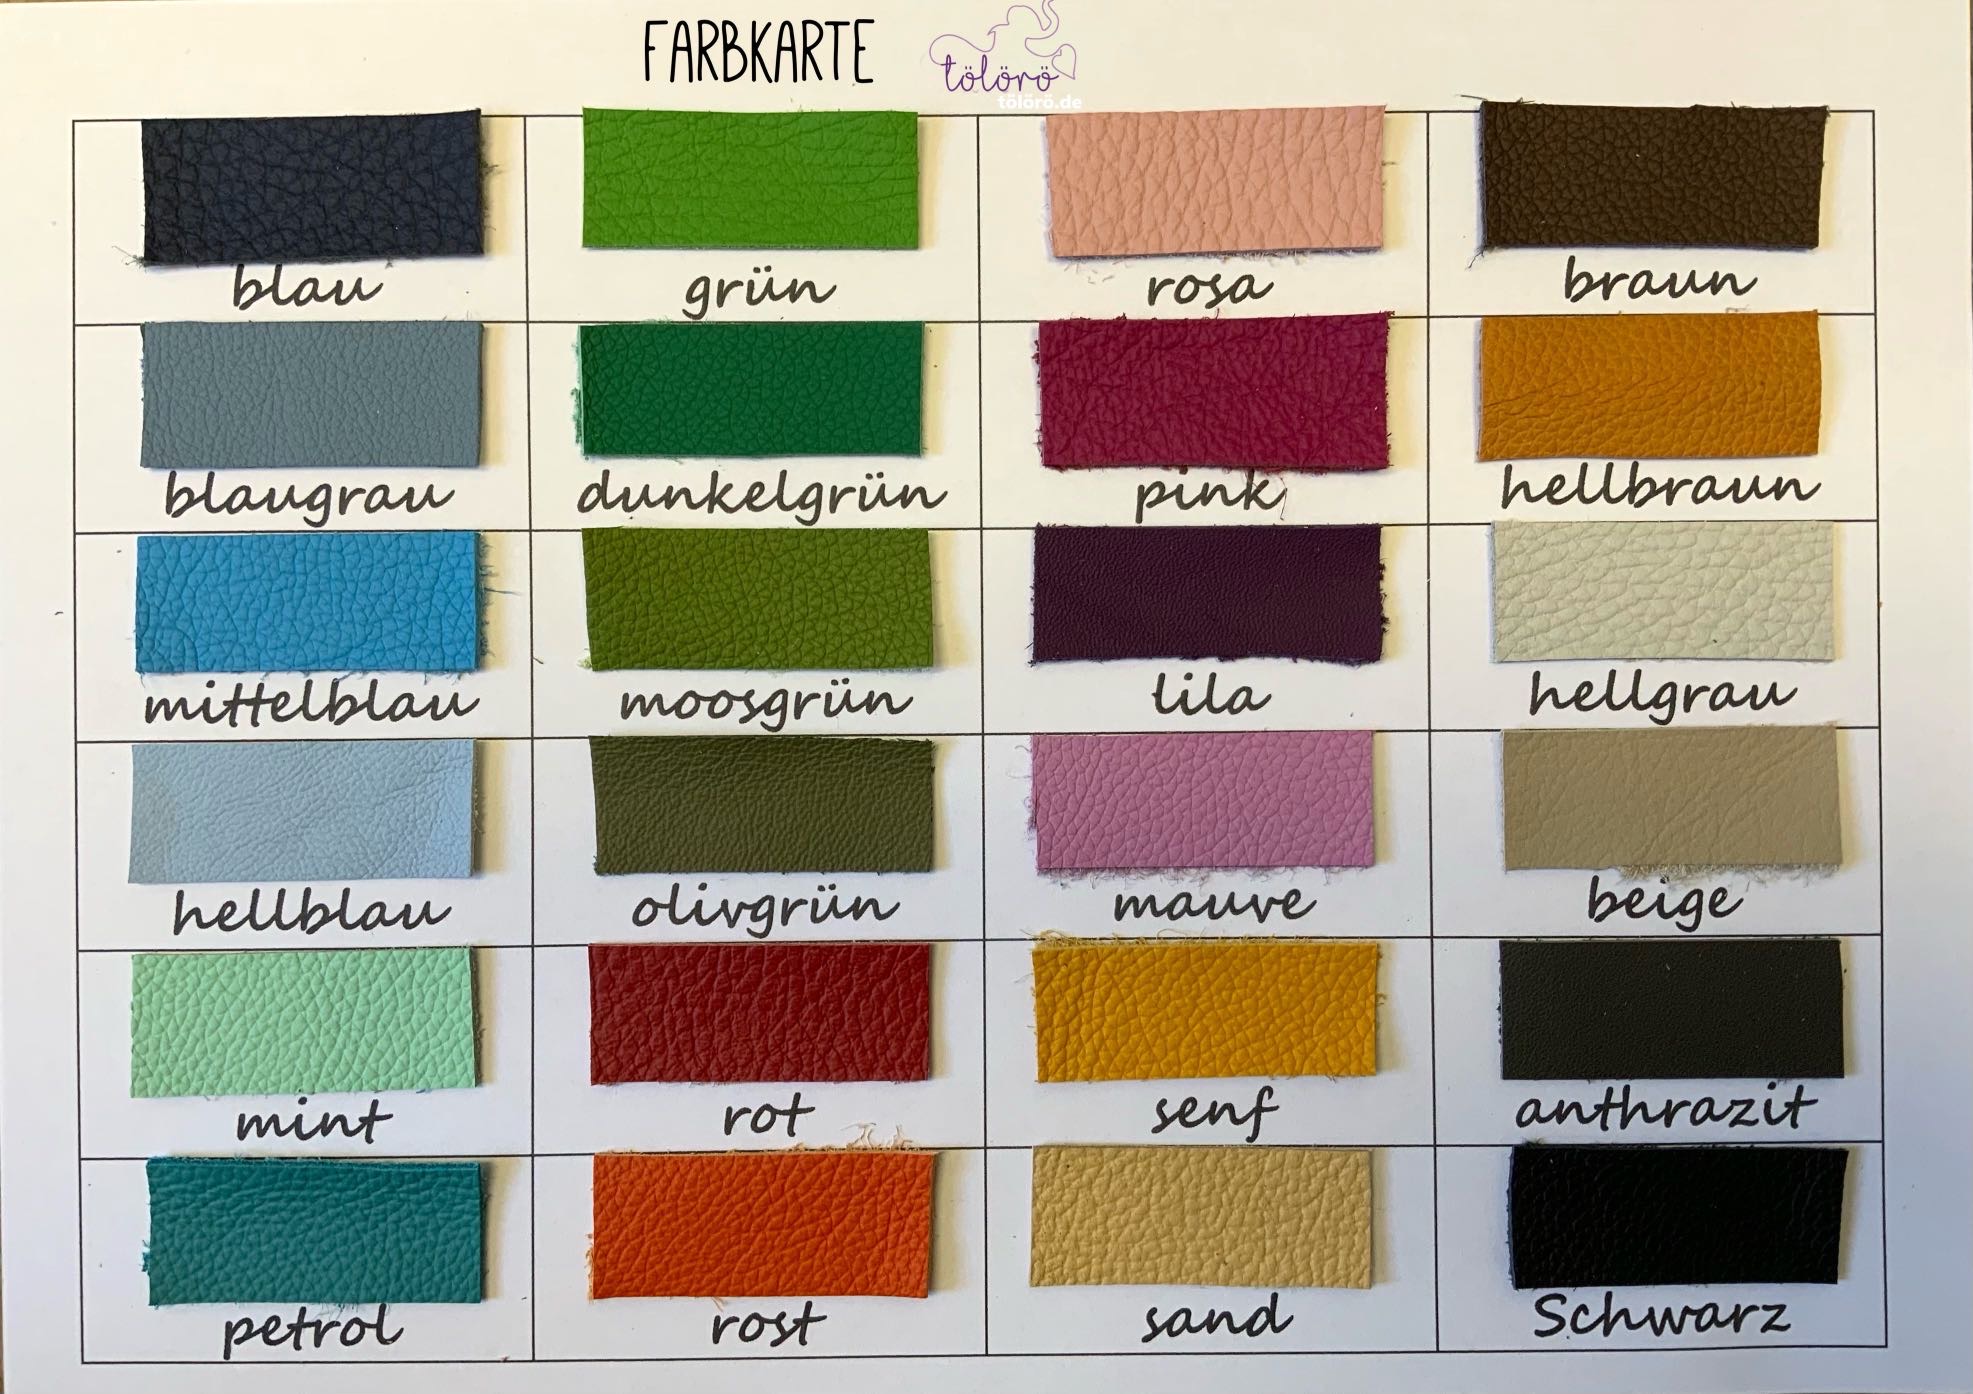 FARBKARTE
tölörö
tölörö.de
blau grün rosa braun
blaugrau dunkelgrün pink hellbraun
mittelblau moosgrün lila hellgrau
hellblau olivgrün mauve beige
mint rot senf anthrazit
petrol rost sand Schwarz